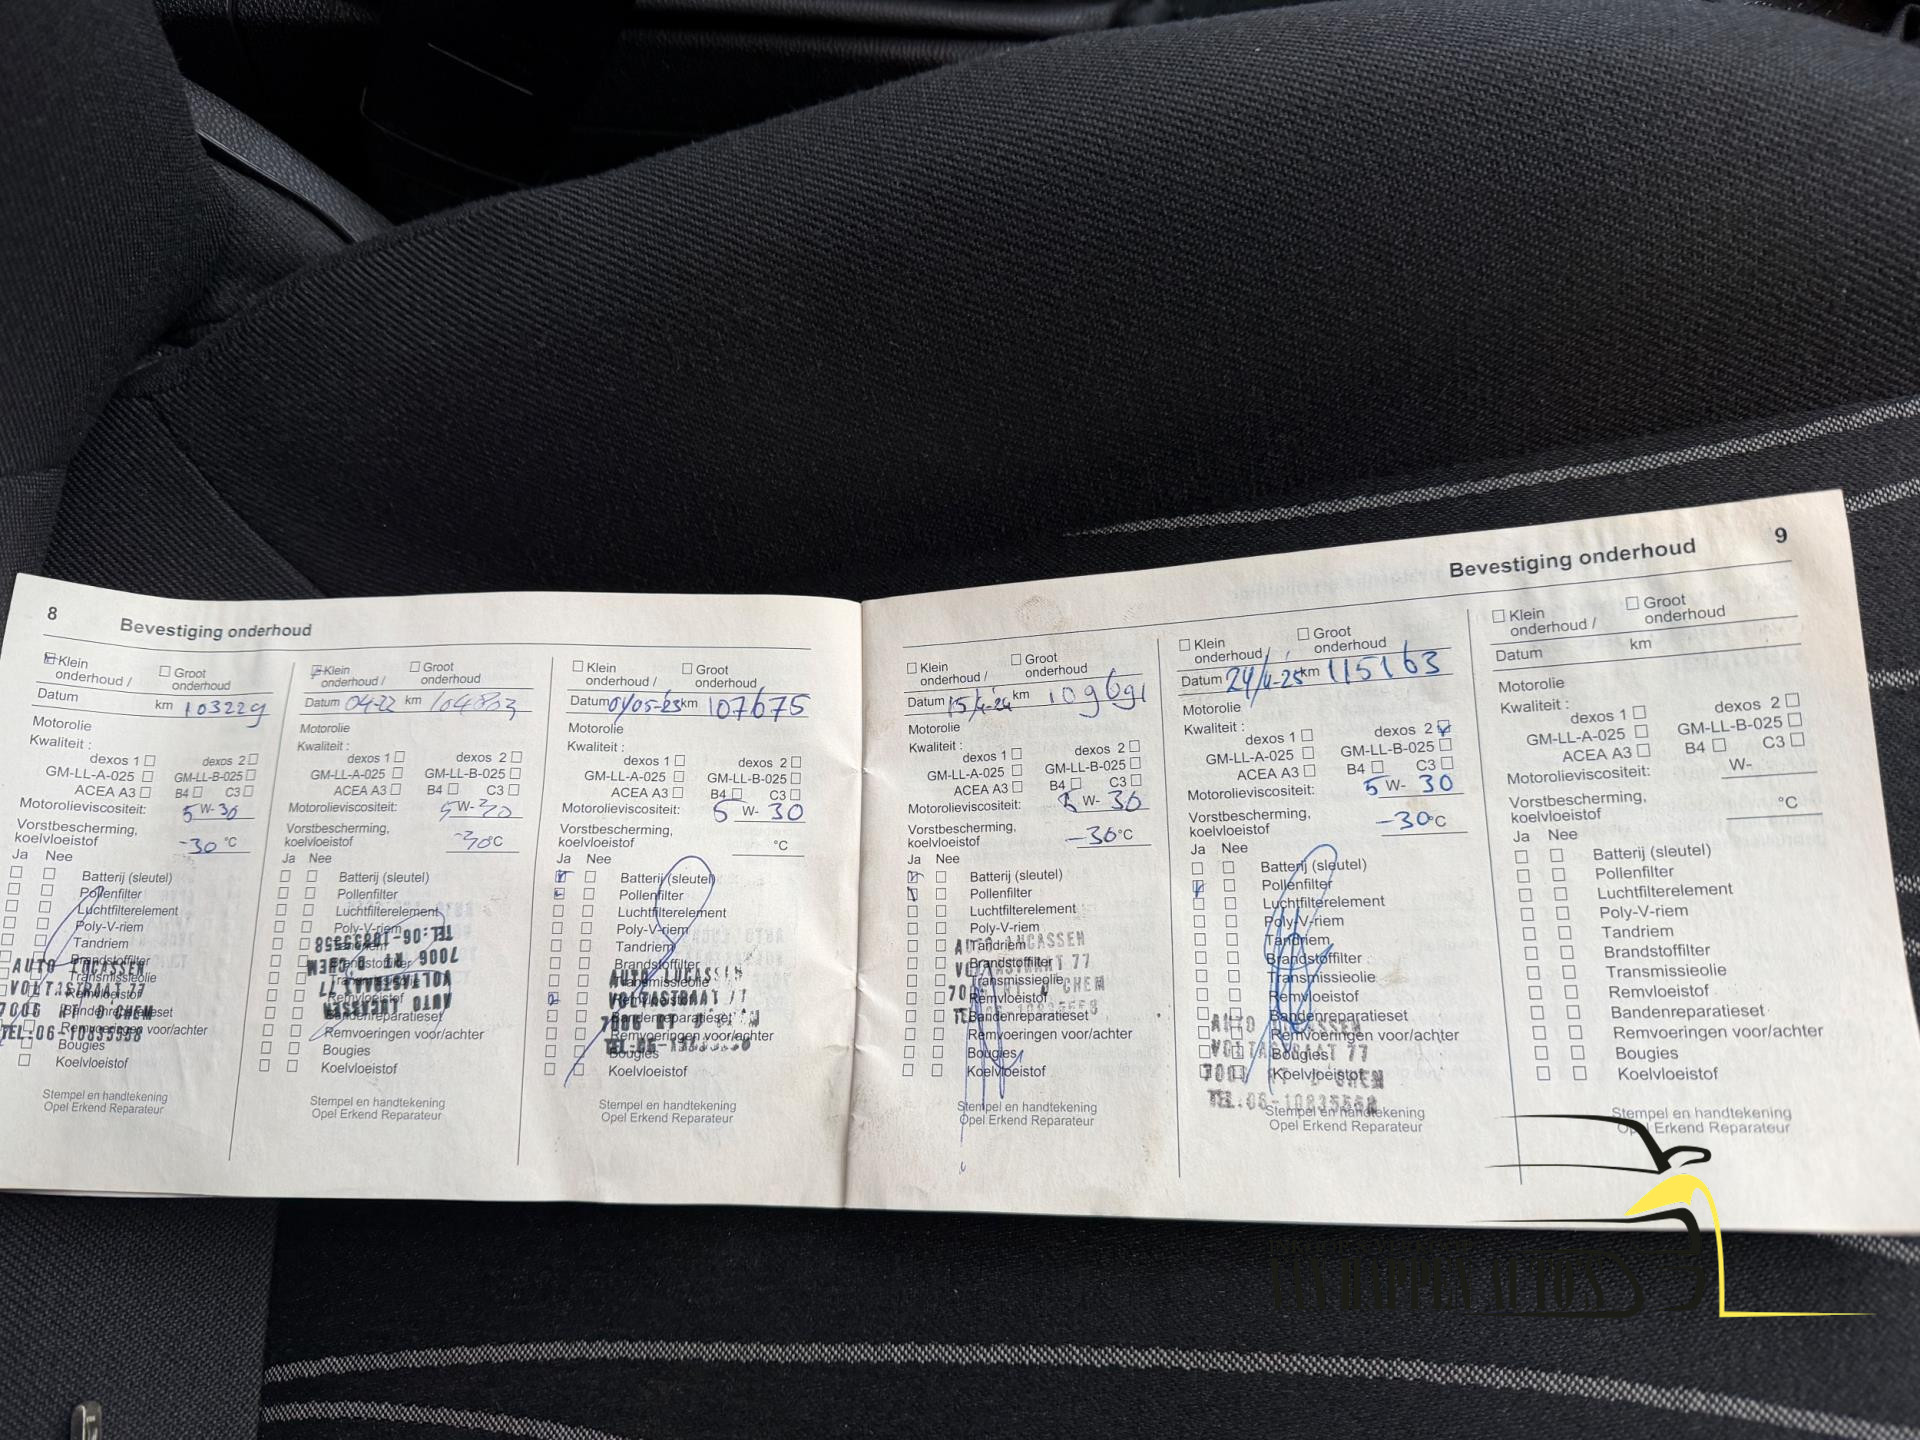 8 Bevestiging onderhoud
Klein onderhoud / Groot onderhoud
Datum km 103229
Motorolie
Kwaliteit :
dexos 1 dexos 2
GM-LL-A-025 GM-LL-B-025
ACEA A3 B4 C3
Motorolieviscositeit: 5 W- 30
Vorstbescherming,
koelvloeistof -30 °C
Ja Nee
Batterij (sleutel)
Pollenfilter
Luchtfilterelement
Poly-V-riem
Tandriem
Brandstoffilter
Transmissieolie
Remvloeistof
Bandenreparatieset
Remvoeringen voor/achter
Bougies
Koelvloeistof
AUTO LUCASSEN
VOLTASTRAAT 77
7006 RT D'CHEM
TEL:06-10835558
Stempel en handtekening
Opel Erkend Reparateur
Klein onderhoud / Groot onderhoud
Datum 04-22 km 104803
Motorolie
Kwaliteit :
dexos 1 dexos 2
GM-LL-A-025 GM-LL-B-025
ACEA A3 B4 C3
Motorolieviscositeit: 5 W- 30
Vorstbescherming,
koelvloeistof -30 °C
Ja Nee
Batterij (sleutel)
Pollenfilter
Luchtfilterelement
Poly-V-riem
Tandriem
Brandstoffilter
Transmissieolie
Remvloeistof
Bandenreparatieset
Remvoeringen voor/achter
Bougies
Koelvloeistof
AUTO LUCASSEN
VOLTASTRAAT 77
7006 RT D'CHEM
TEL:06-10835558
Stempel en handtekening
Opel Erkend Reparateur
Klein onderhoud / Groot onderhoud
Datum 01/05-23 km 107675
Motorolie
Kwaliteit :
dexos 1 dexos 2
GM-LL-A-025 GM-LL-B-025
ACEA A3 B4 C3
Motorolieviscositeit: 5 W- 30
Vorstbescherming,
koelvloeistof °C
Ja Nee
Batterij (sleutel)
Pollenfilter
Luchtfilterelement
Poly-V-riem
Tandriem
Brandstoffilter
Transmissieolie
Remvloeistof
Bandenreparatieset
Remvoeringen voor/achter
Bougies
Koelvloeistof
AUTO LUCASSEN
VOLTASTRAAT 77
7006 RT D'CHEM
TEL:06-10835558
Stempel en handtekening
Opel Erkend Reparateur
Bevestiging onderhoud 9
Klein onderhoud / Groot onderhoud
Datum 15/4-24 km 109691
Motorolie
Kwaliteit :
dexos 1 dexos 2
GM-LL-A-025 GM-LL-B-025
ACEA A3 B4 C3
Motorolieviscositeit: 5 W- 30
Vorstbescherming,
koelvloeistof -30 °C
Ja Nee
Batterij (sleutel)
Pollenfilter
Luchtfilterelement
Poly-V-riem
Tandriem
Brandstoffilter
Transmissieolie
Remvloeistof
Bandenreparatieset
Remvoeringen voor/achter
Bougies
Koelvloeistof
AUTO LUCASSEN
VOLTASTRAAT 77
7006 RT D'CHEM
TEL:06-10835558
Stempel en handtekening
Opel Erkend Reparateur
Klein onderhoud / Groot onderhoud
Datum 24/4-25 km 115163
Motorolie
Kwaliteit :
dexos 1 dexos 2
GM-LL-A-025 GM-LL-B-025
ACEA A3 B4 C3
Motorolieviscositeit: 5 W- 30
Vorstbescherming,
koelvloeistof -30 °C
Ja Nee
Batterij (sleutel)
Pollenfilter
Luchtfilterelement
Poly-V-riem
Tandriem
Brandstoffilter
Transmissieolie
Remvloeistof
Bandenreparatieset
Remvoeringen voor/achter
Bougies
Koelvloeistof
AUTO LUCASSEN
VOLTASTRAAT 77
7006 RT D'CHEM
TEL:06-10835558
Stempel en handtekening
Opel Erkend Reparateur
Klein onderhoud / Groot onderhoud
Datum km
Motorolie
Kwaliteit :
dexos 1 dexos 2
GM-LL-A-025 GM-LL-B-025
ACEA A3 B4 C3
Motorolieviscositeit: W-
Vorstbescherming,
koelvloeistof °C
Ja Nee
Batterij (sleutel)
Pollenfilter
Luchtfilterelement
Poly-V-riem
Tandriem
Brandstoffilter
Transmissieolie
Remvloeistof
Bandenreparatieset
Remvoeringen voor/achter
Bougies
Koelvloeistof
Stempel en handtekening
Opel Erkend Reparateur